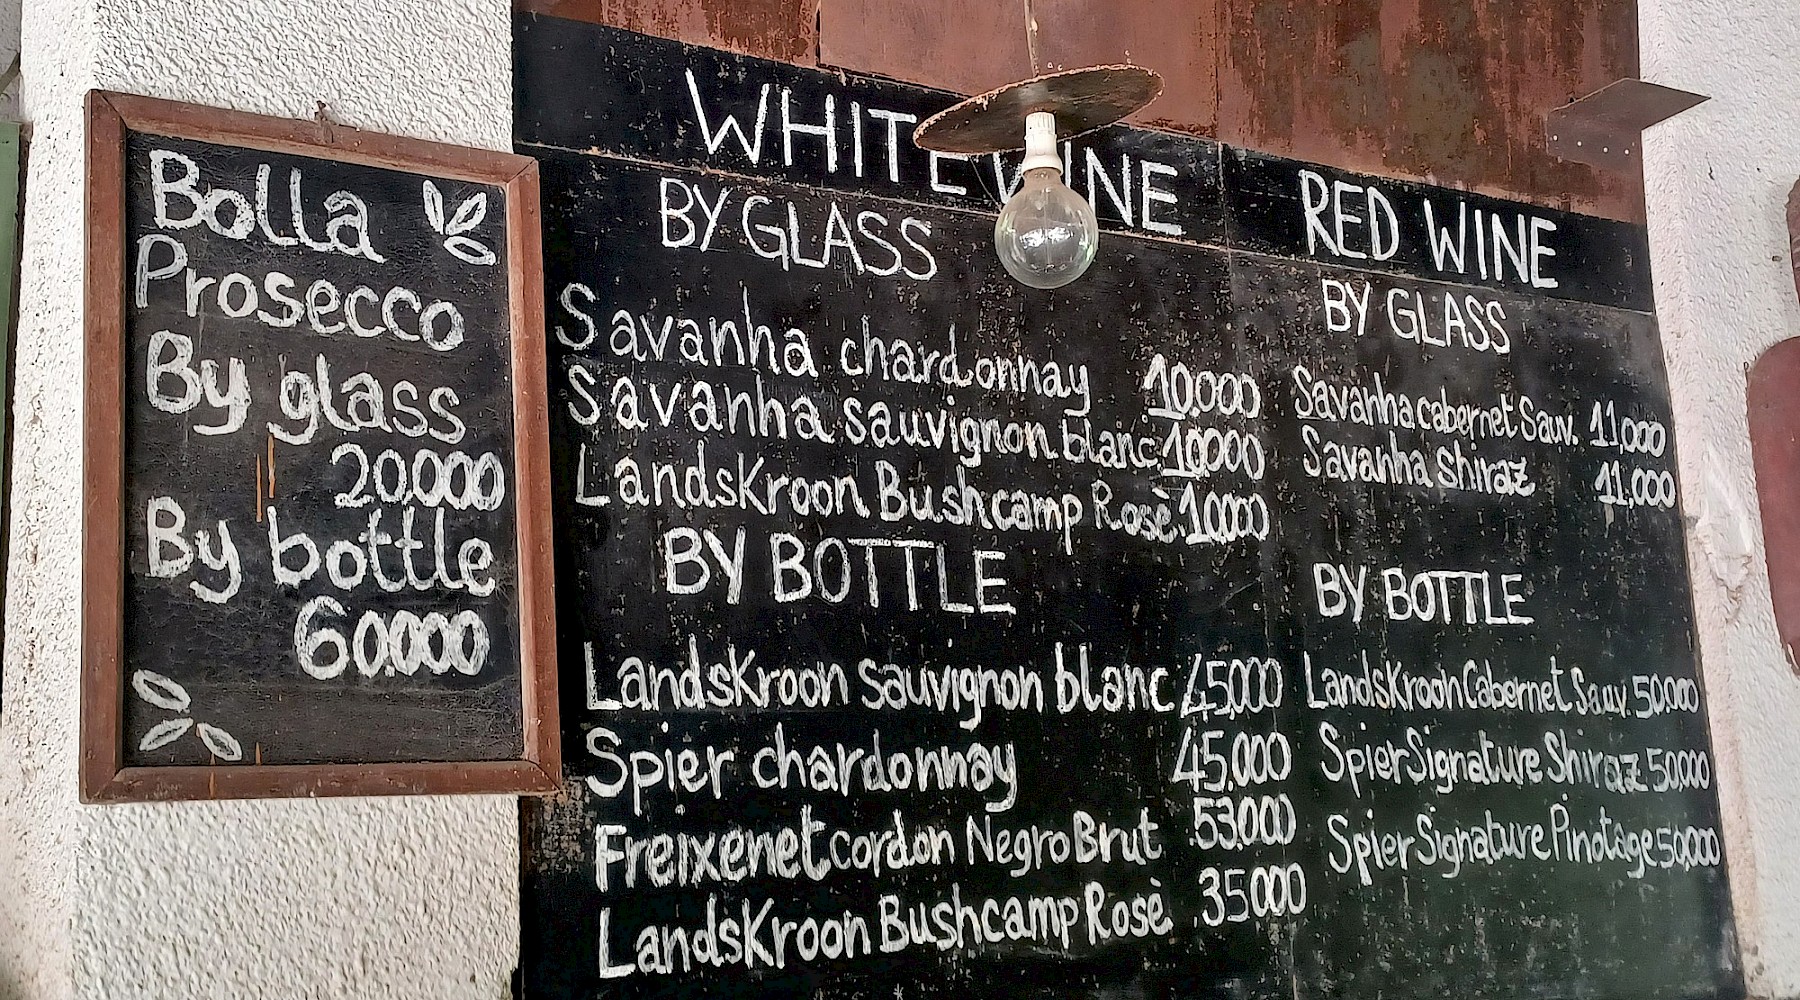 Bolla
Prosecco
By glass
20.000
By bottle
60.000
WHITE WINE
BY GLASS
Savanha chardonnay 10.000
Savanha sauvignon blanc 10.000
LandsKroon Bushcamp Rosè 10.000
BY BOTTLE
LandsKroon sauvignon blanc 45.000
Spier chardonnay 45.000
Freixenet cordon Negro Brut 53.000
LandsKroon Bushcamp Rosè 35000
RED WINE
BY GLASS
Savanha cabernet Sauv. 11,000
Savanha Shiraz 11,000
BY BOTTLE
LandsKroon Cabernet Sauv. 50.000
Spier Signature Shiraz 50,000
Spier Signature Pinotage 50,000